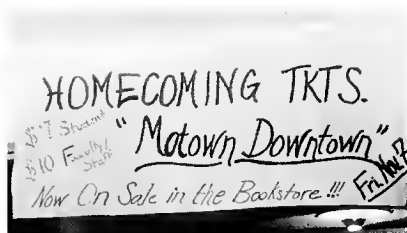 HOMECOMING TKTS.
$7 Student
$10 Faculty/
Staff
"Motown Downtown"
Fri. Nov. 7
Now On Sale in the Bookstore !!!